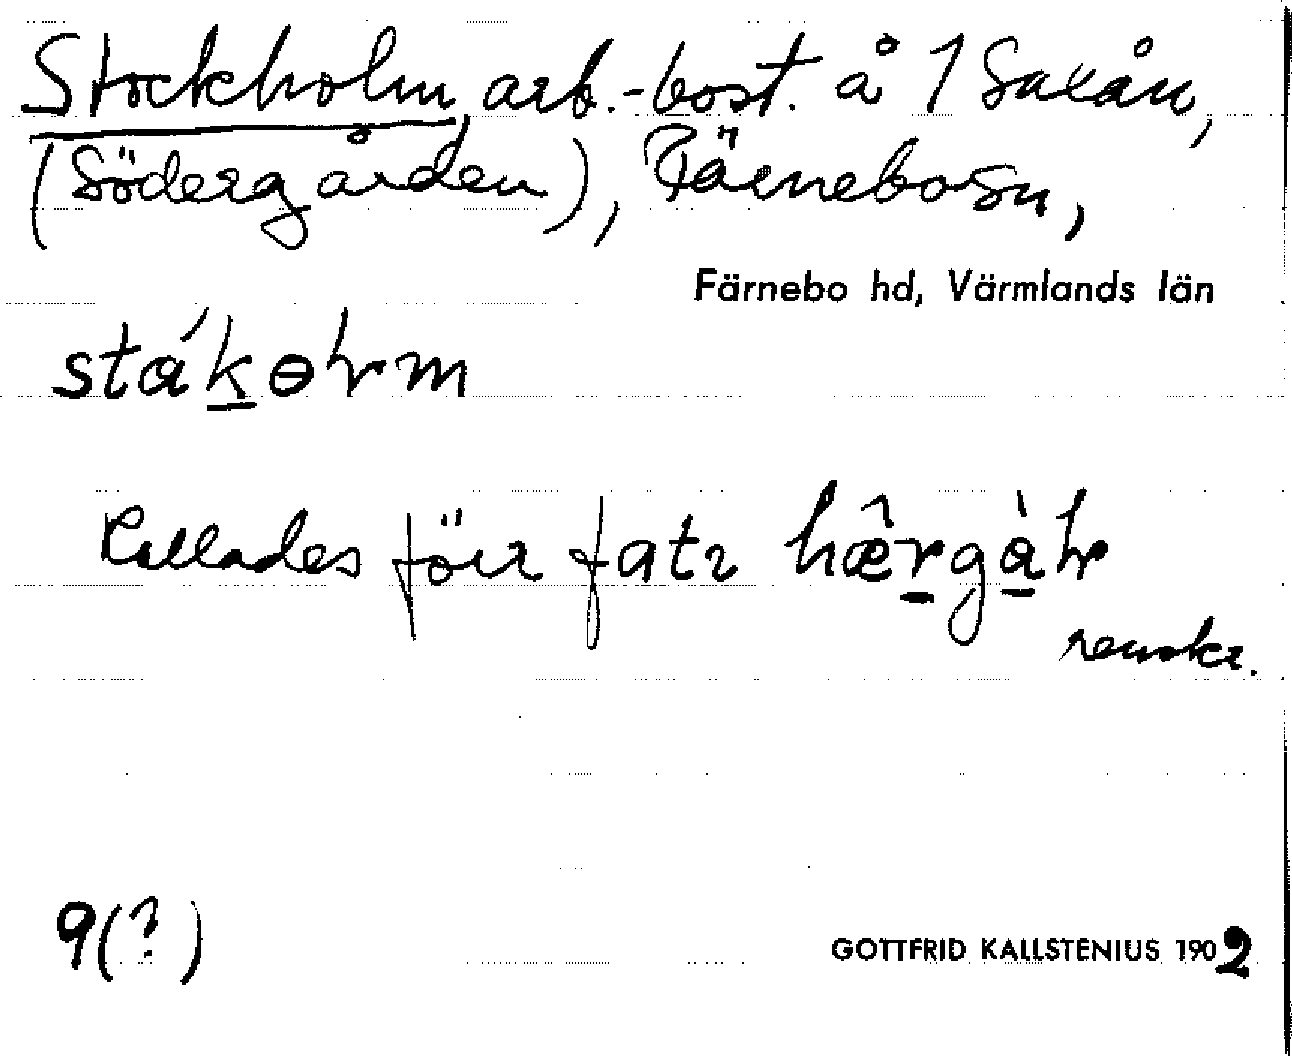 Stockholm, arb.-bost. å 1 Saxån,
(Södergården), Färnebo sn,
Färnebo hd, Värmlands län
sták̲ɵɫm
Kallades förr fatı hæ̂r̲gà̲ɫ
renskr.
9(?)
GOTTFRID KALLSTENIUS 1902